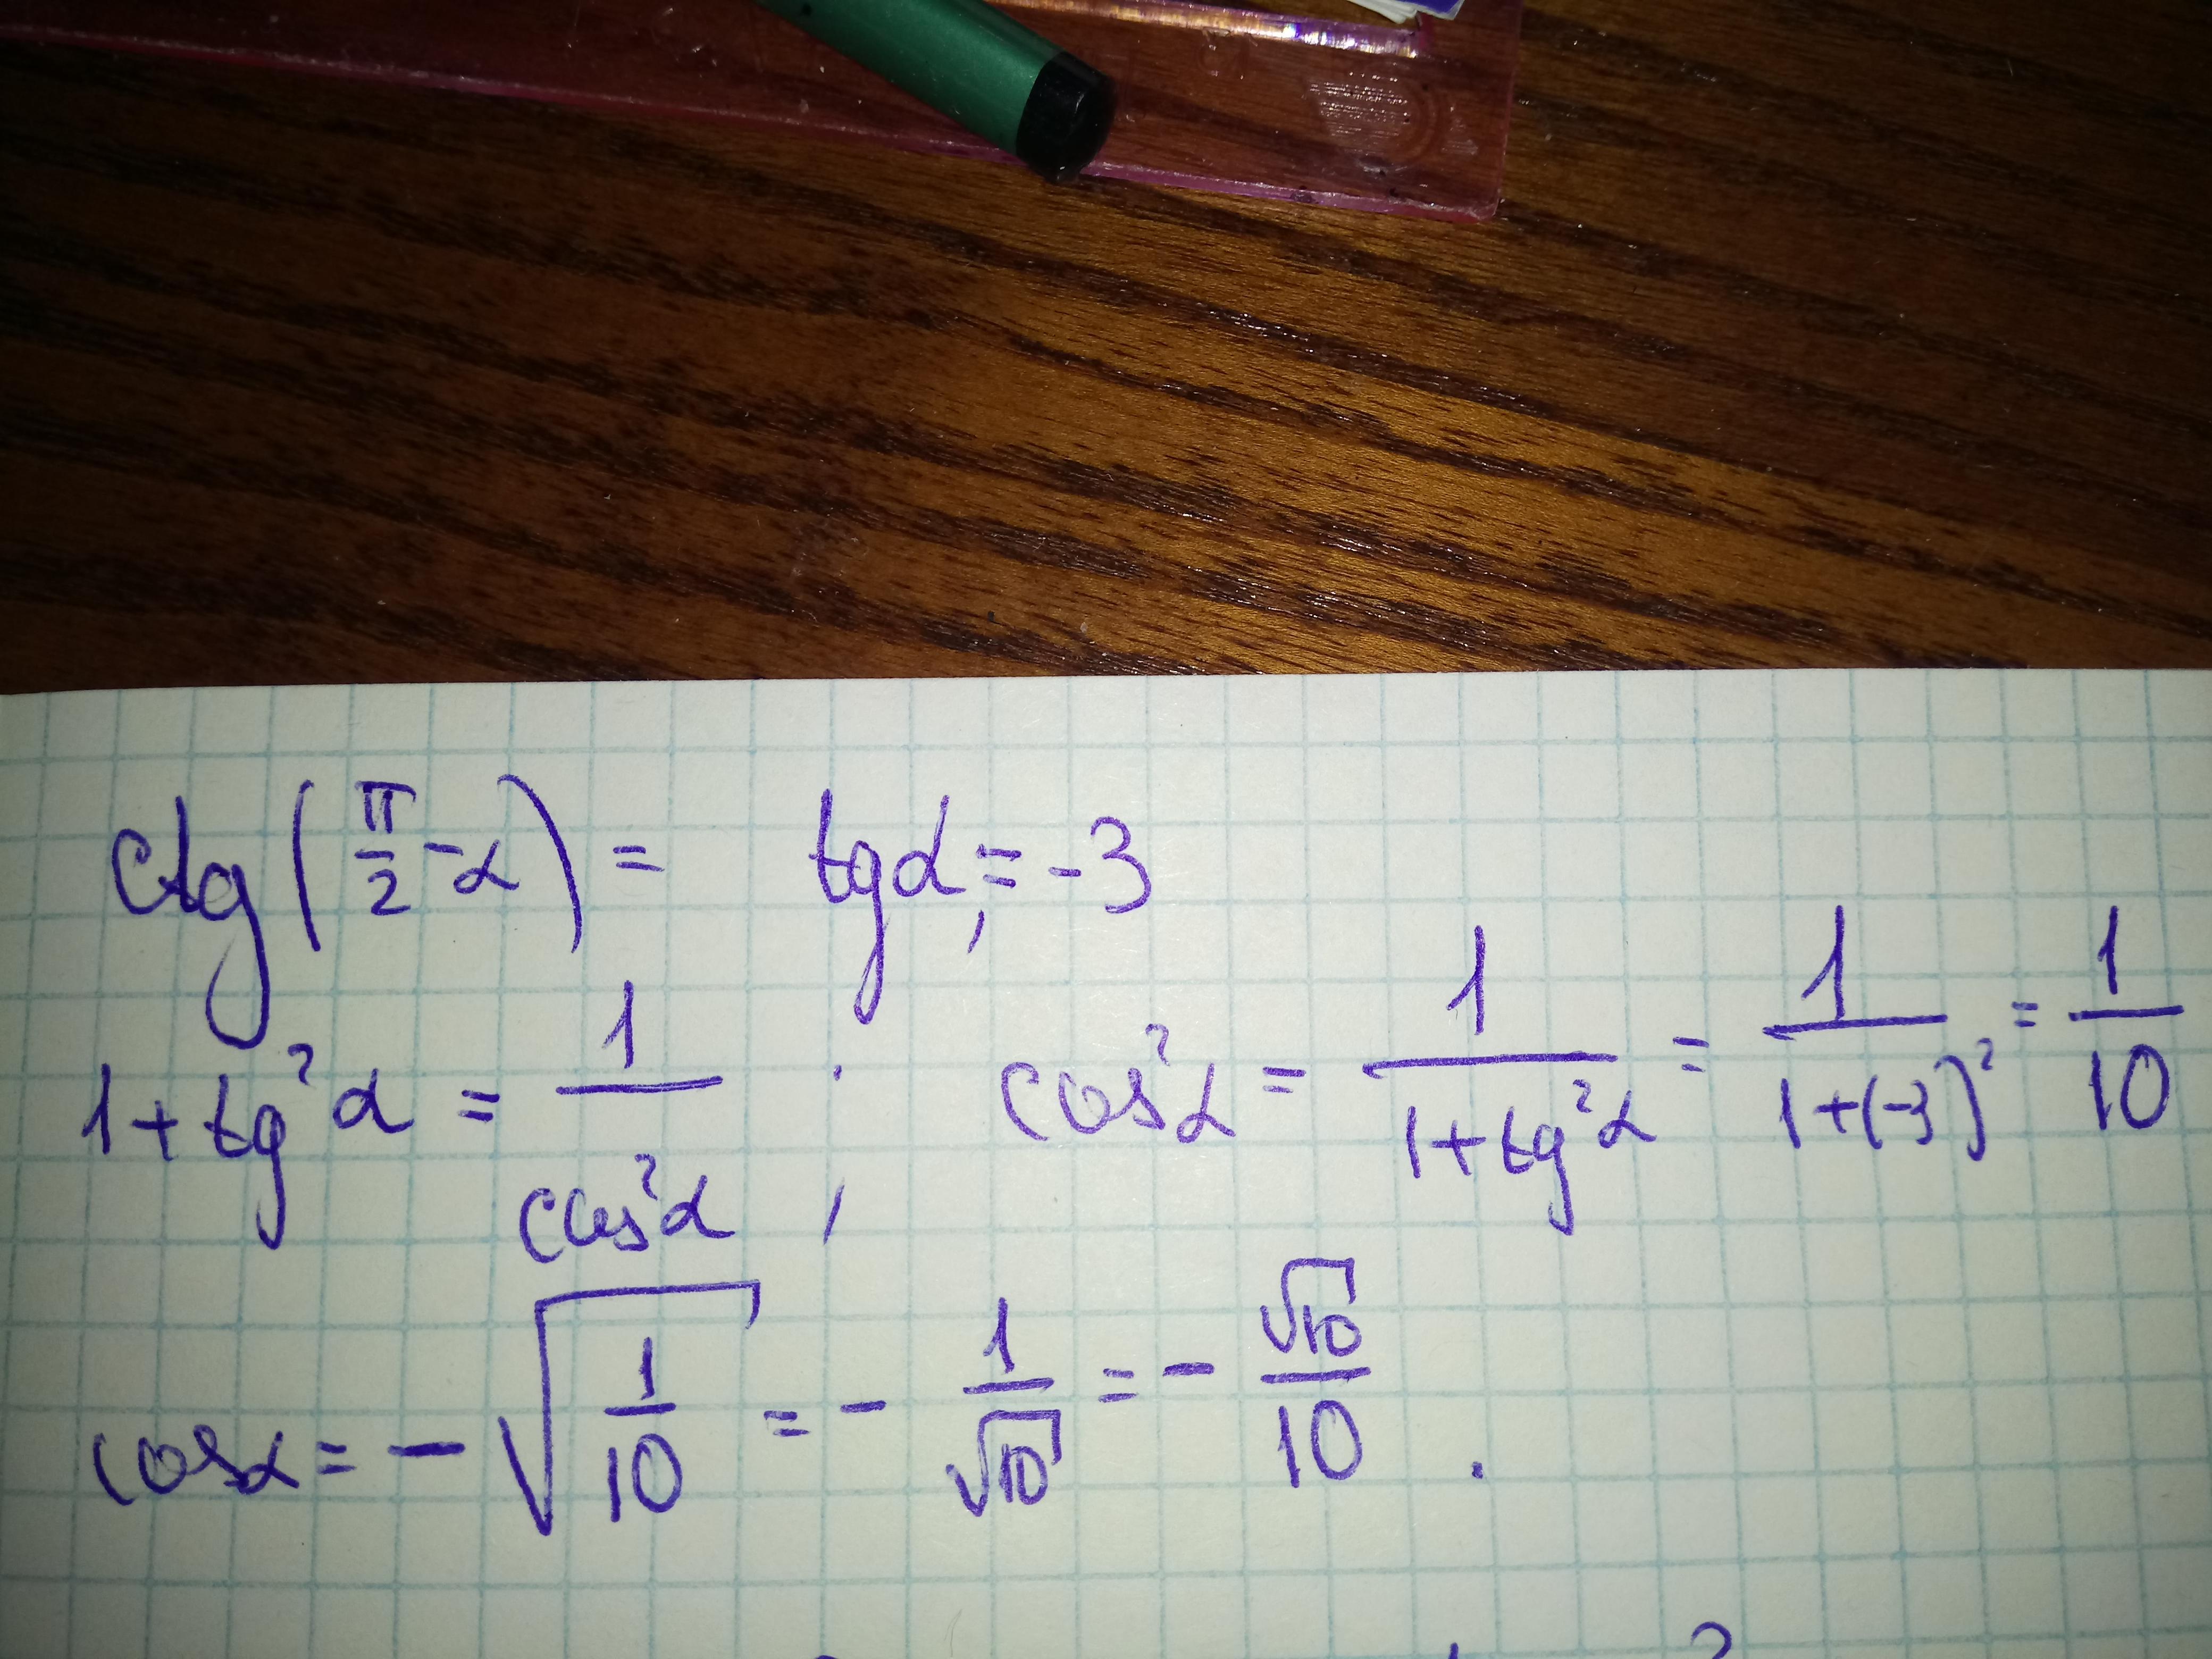 ctg(π/2 - α) = tgα; = -3
1 + tg²α = 1/cos²α ; cos²α = 1/(1+tg²α) = 1/(1+(-3)²) = 1/10
cosα = - √(1/10) = - 1/√10 = - √10/10 .